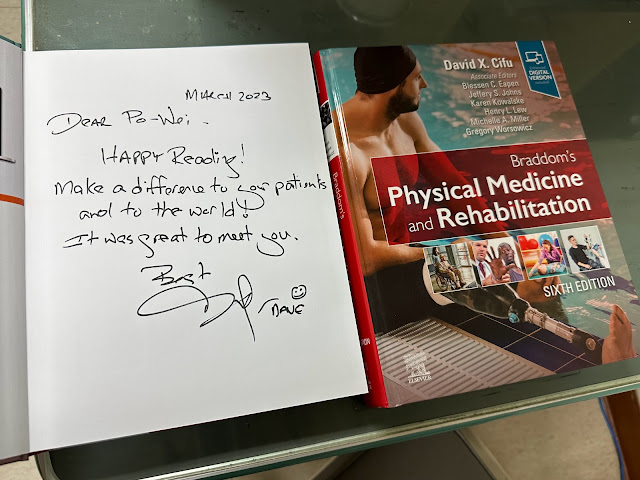 MARCH 2023
DEAR Po-Wei,
HAPPY Reading!
Make a difference to your patients
and to the world!
It was great to meet you.
Best
DAVE
Braddom's
David X. Cifu
Associate Editors
Blessen C. Eapen
Jeffery S. Johns
Karen Kowalske
Henry L. Lew
Michelle A. Miller
Gregory Worsowicz
DIGITAL
VERSION
Braddom's
Physical Medicine
and Rehabilitation
SIXTH EDITION
ELSEVIER